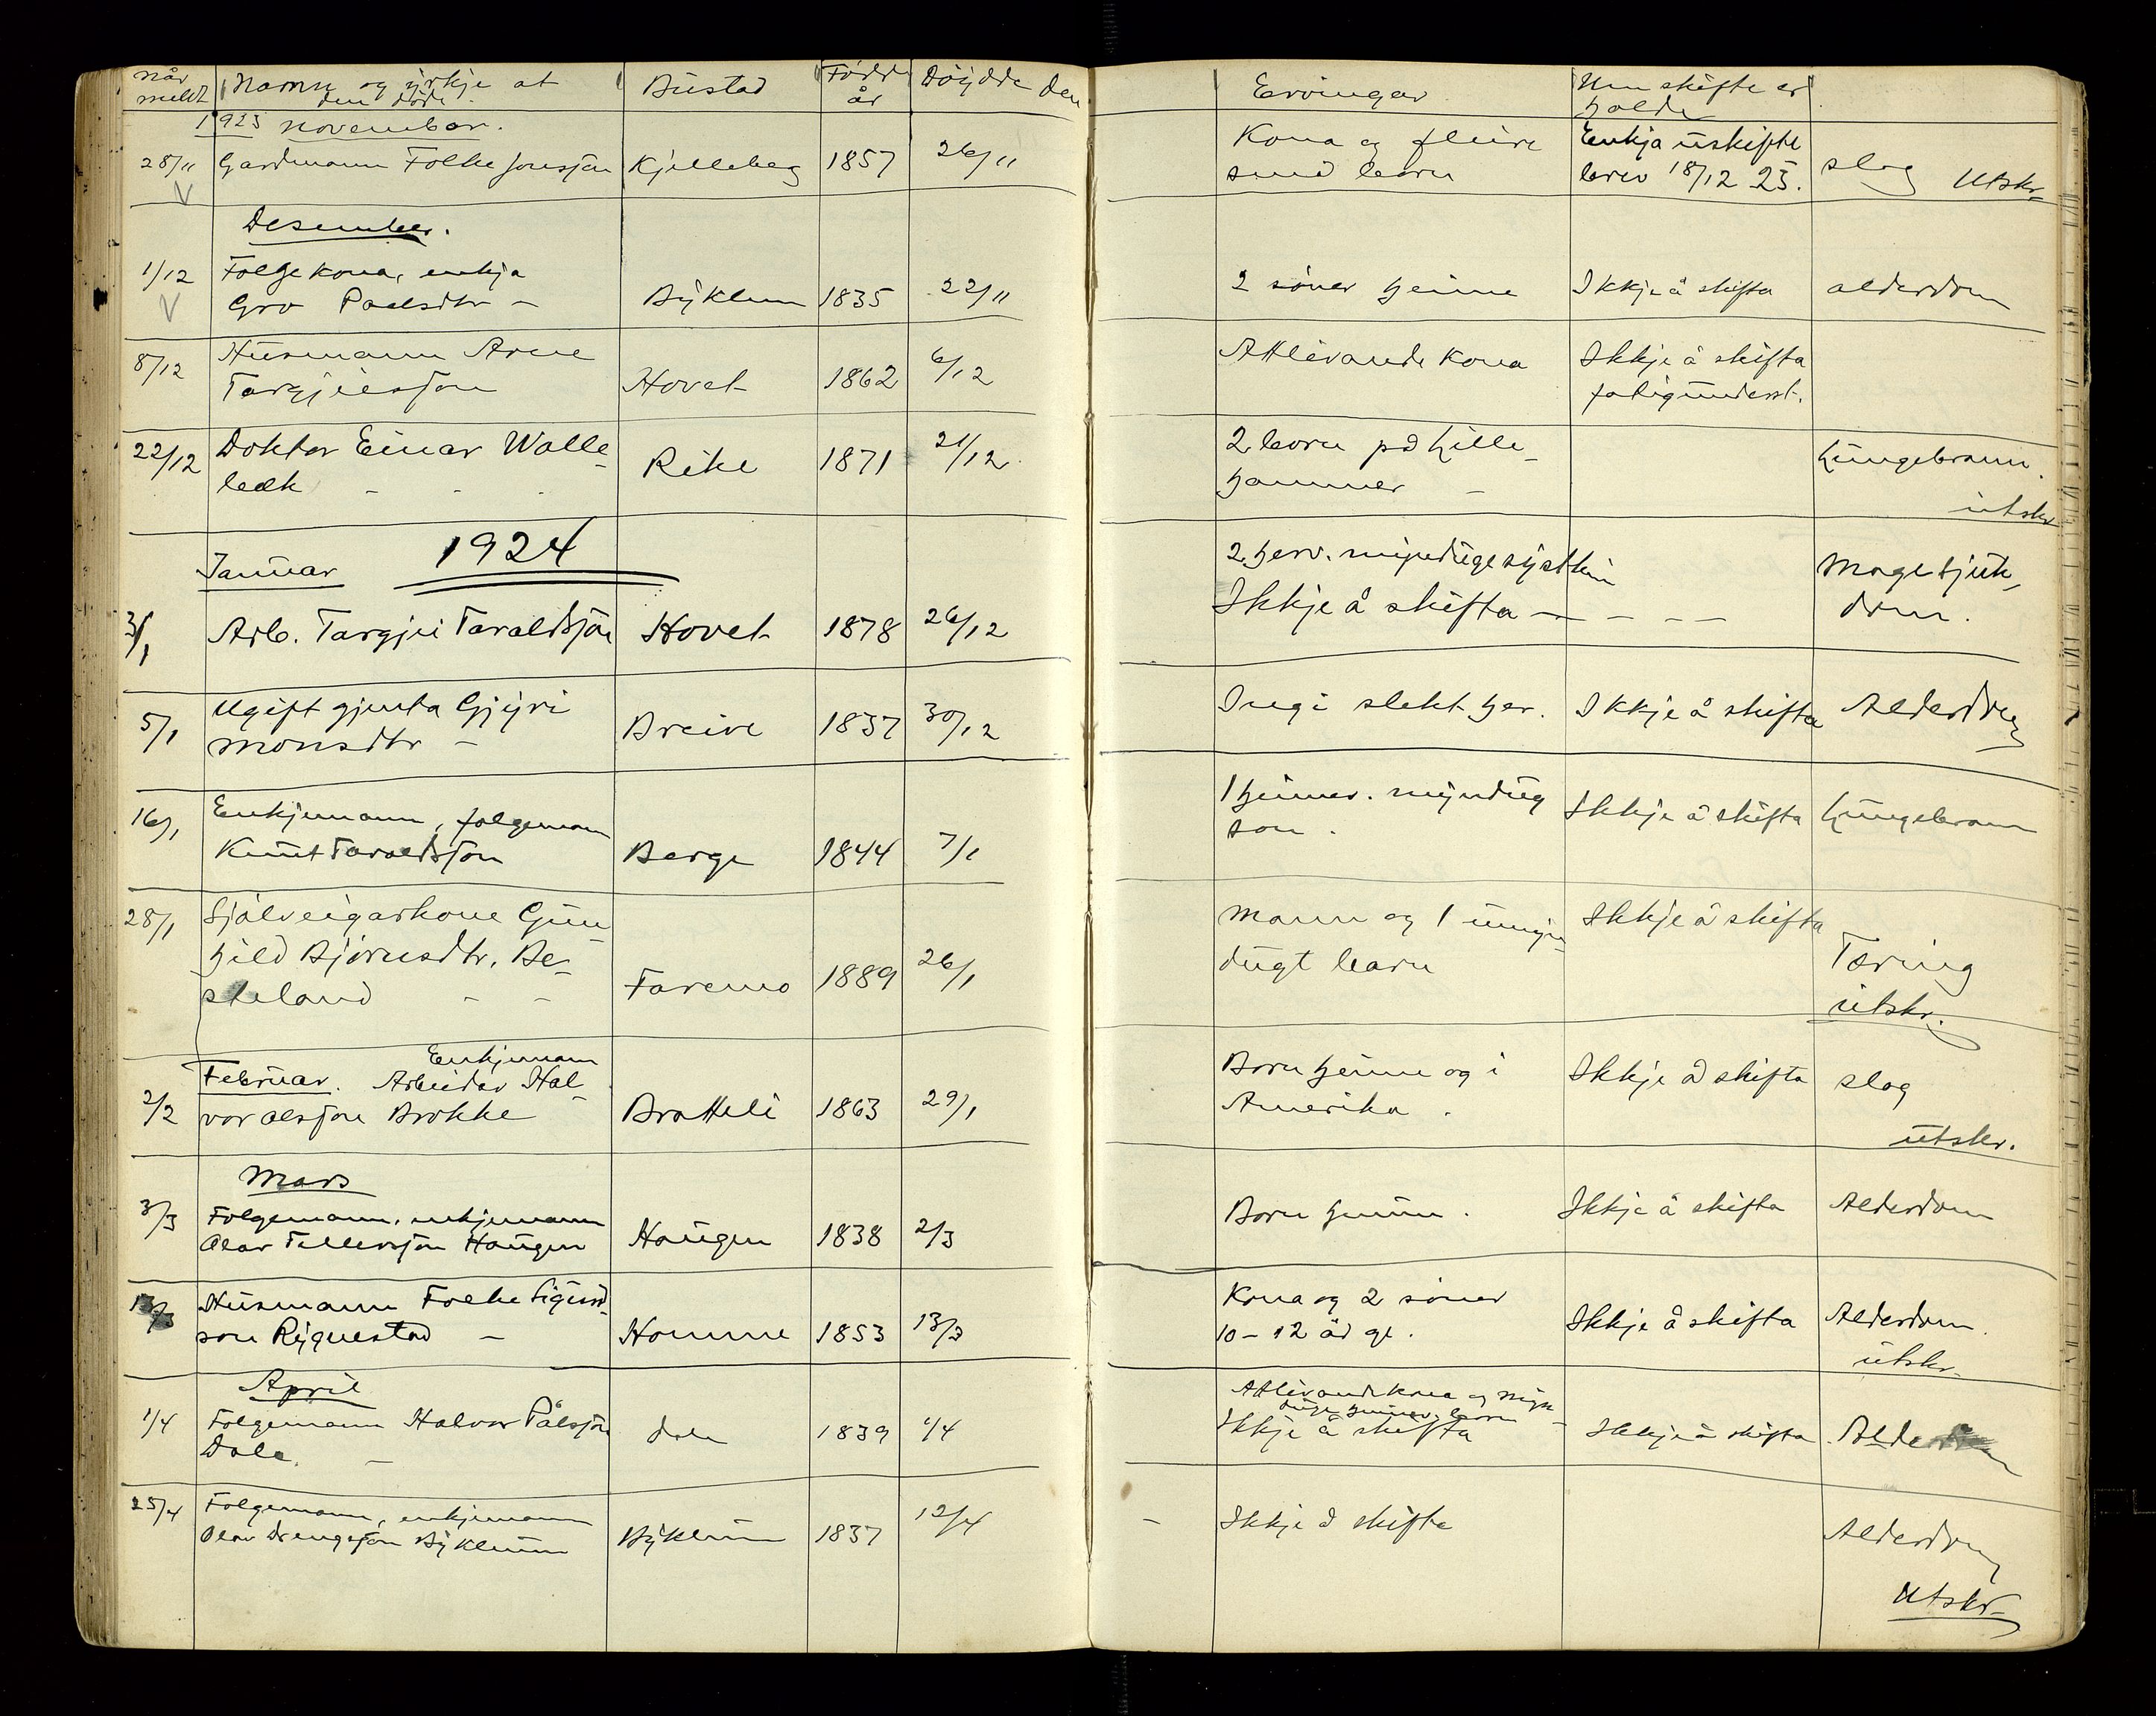 Når meldt | Namn og yrkje at den døde. | Bustad | Fødde år | Døydde den | Ervingar | Um skifte er halde
1923 November.
28/11 Gardmann Folke Jonsson | Kjelleberg | 1857 | 26/11 | Kona og fleire | Enkja uskifte
små born | brev 18/12 23. | slag Utskr.
Desember.
1/12 Følgekona, enkja
Gro Paalsdtr – | Byklum | 1835 | 22/11 | 2 søner heime | Ikkje å skifta | alderdom
8/12 Husmann Arne
Targjeisson | Hovet | 1862 | 6/12 | Attlevande kona | Ikkje å skifta
fatigunderst.
22/12 Doktor Einar Walle-
bæk | Rike | 1871 | 21/12 | 2 born på Lille-
hammer – | Lungebrann.
utskr
1924
Januar
3/1 Arb. Targjei Taraldsson | Hovet | 1878 | 26/12 | 2 herv. myndige systkin
Ikkje å skifta – – – – | Magesjuk-
dom.
5/1 Ugift gjenta Gjyri
Monsdtr – | Breive | 1837 | 30/12 | Ingi slekt her. | Ikkje å skifta | Alderdom
16/1 Enkjemann, følgemann
Knut Taraldsson | Berge | 1844 | 7/1 | 1 heimev. myndug
son. | Ikkje å skifta | Lungebrann
28/1 Sjølveigarkone Gun-
hild Bjørnsdtr. Be-
steland – – | Faremo | 1889 | 26/1 | Mann og 1 umyn-
dugt barn | Ikkje å skifta | Tæring
utskr.
Februar. Enkjemann
2/2 Arbeidar Hal-
vor Olsson Brokke | Bratteli | 1863 | 29/1 | Born heime og i
Amerika. | Ikkje å skifta | slag
utskr.
Mars
3/3 Følgemann, enkjemann
Olav Tellevsson Haugen | Haugen | 1838 | 2/3 | Born heime. | Ikkje å skifta | Alderdom
Husmann Folke Sigurd-
son Rygnestad – | Homme | 1853 | 13/3 | Kona og 2 søner
10 – 12 år gl. | Ikkje å skifta | Alderdom.
utskr.
April
1/4 Følgemann Halvor Pålsson
Dale. – | Dale | 1839 | 1/4 | Attlevande kona og myn-
duge heimev. born
Ikkje å skifta | Ikkje å skifta | Alderdom
25/4 Følgemann, enkjemann
Olav Drengsson Byklum | Byklum | 1837 | 12/4 | Ikkje å skifta | Alderdom
Utskr.